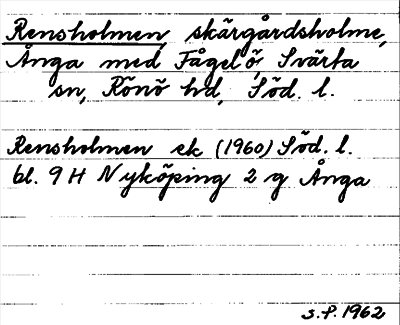 Rensholmen, skärgårdsholme,
Ånga med Fågelö, Svärta
sn, Rönö hd, Söd. l.
Rensholmen ek (1960) Söd. l.
bl. 9 H Nyköping 2 g Ånga
S.P. 1962